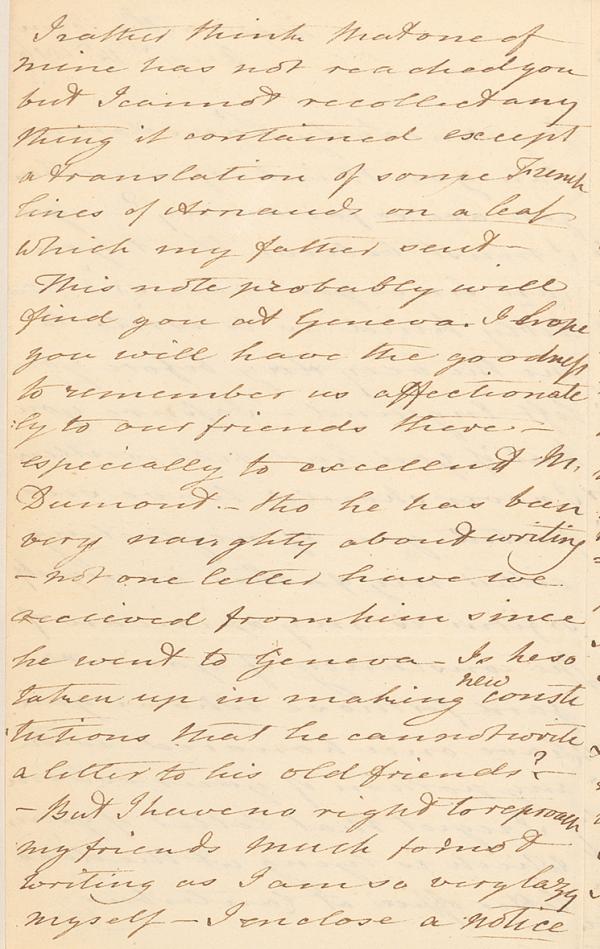 I rather think that one of
mine has not reached you
but I cannot recollect any
thing it contained except
a translation of some French
lines of Arnauds on a leaf
which my father sent –
This note probably will
find you at Geneva. I hope
you will have the goodness
to remember us affectionate
:ly to our friends there –
especially to excellent M.
Dumont. – tho he has been
very naughty about writing
– not one letter have we
recieved from him since
he went to Geneva – Is he so
taken up in making new consti
tutions that he cannot write
a letter to his old friends? –
– But I have no right to reproach
my friends much for not
writing as I am so very lazy
myself – I enclose a notice